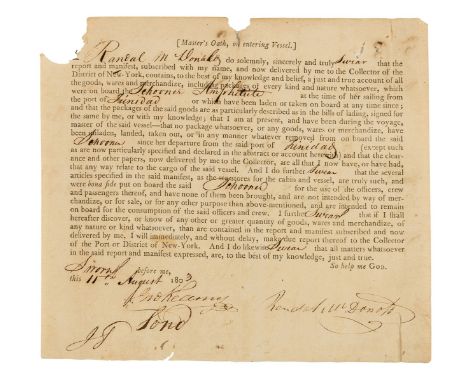 [Master's Oath, on entering Vessel.]
I Randal McDonald do solemnly, sincerely and truly Swear that the
report and manifest, subscribed with my name, and now delivered by me to the Collector of the
District of New-York, contains, to the best of my knowledge and belief, a just and true account of all
the goods, wares and merchandize, including packages of every kind and nature whatsoever, which
were on board the Schooner Amphitrite at the time of her sailing from
the port of Trinidad or which have been laden or taken on board at any time since;
and that the packages of the said goods are as particularly described as in the bills of lading, signed for
the same by me, or with my knowledge; that I am at present, and have been during the voyage,
master of the said vessel—that no package whatsoever, or any goods, wares or merchandize, have
been unladen, landed, taken out, or in any manner whatever removed from on board the said
Schooner since her departure from the said port of Trinidad (except such
as are now particularly specified and declared in the abstract or account herewith) and that the clear-
ance and other papers, now delivered by me to the Collector, are all that I now have, or have had,
that any way relate to the cargo of the said vessel. And I do further Swear that the several
articles specified in the said manifest, as the sea-stores for the cabin and vessel, are truly such, and
were bona fide put on board the said Schooner for the use of the officers, crew
and passengers thereof, and have none of them been brought, and are not intended by way of mer-
chandize, or for sale, or for any other purpose than above-mentioned, and are intended to remain
on board for the consumption of the said officers and crew. I further Swear that if I shall
hereafter discover, or know of any other or greater quantity of goods, wares and merchandize, of
any nature or kind whatsoever, than are contained in the report and manifest subscribed and now
delivered by me, I will immediately, and without delay, make due report thereof to the Collector
of the Port or District of New-York. And I do likewise Swear that all matters whatsoever
in the said report and manifest expressed, are, to the best of my knowledge, just and true.
So help me God.
Sworn before me,
this 11th August 1803
Randal McDonald